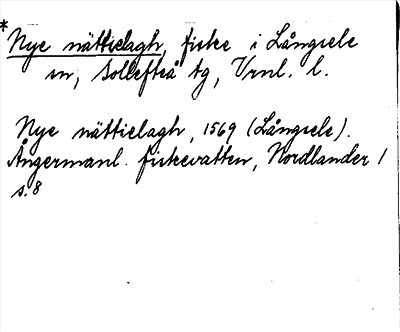 * Nye nättielagh, fiske i Långsele
sn, Sollefteå tg, Vrnl. l.
Nye nättielagh, 1569 (Långsele).
Ångermanl. fiskevatten, Nordlander 1
s. 8